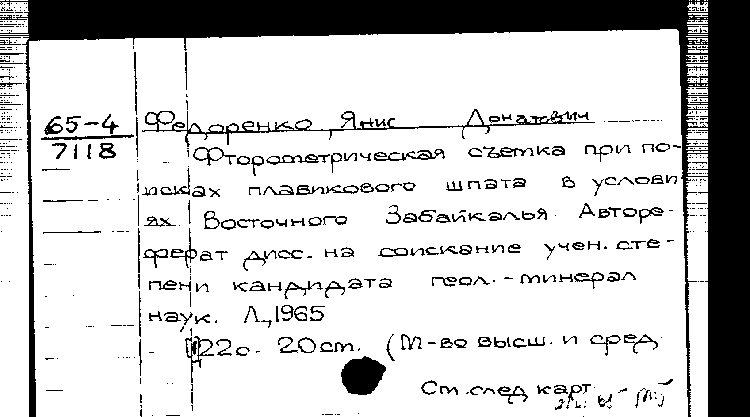 65-4
7118
Федоренко, Янис Донатович
Фторометрическая съемка при по-
исках плавикового шпата в услови
ях Восточного Забайкалья. Авторе-
ферат дисс. на соискание учен. сте-
пени кандидата геол.-минерал
наук. Л., 1965
22с. 20см. (М-во высш. и сред
См. след карт.